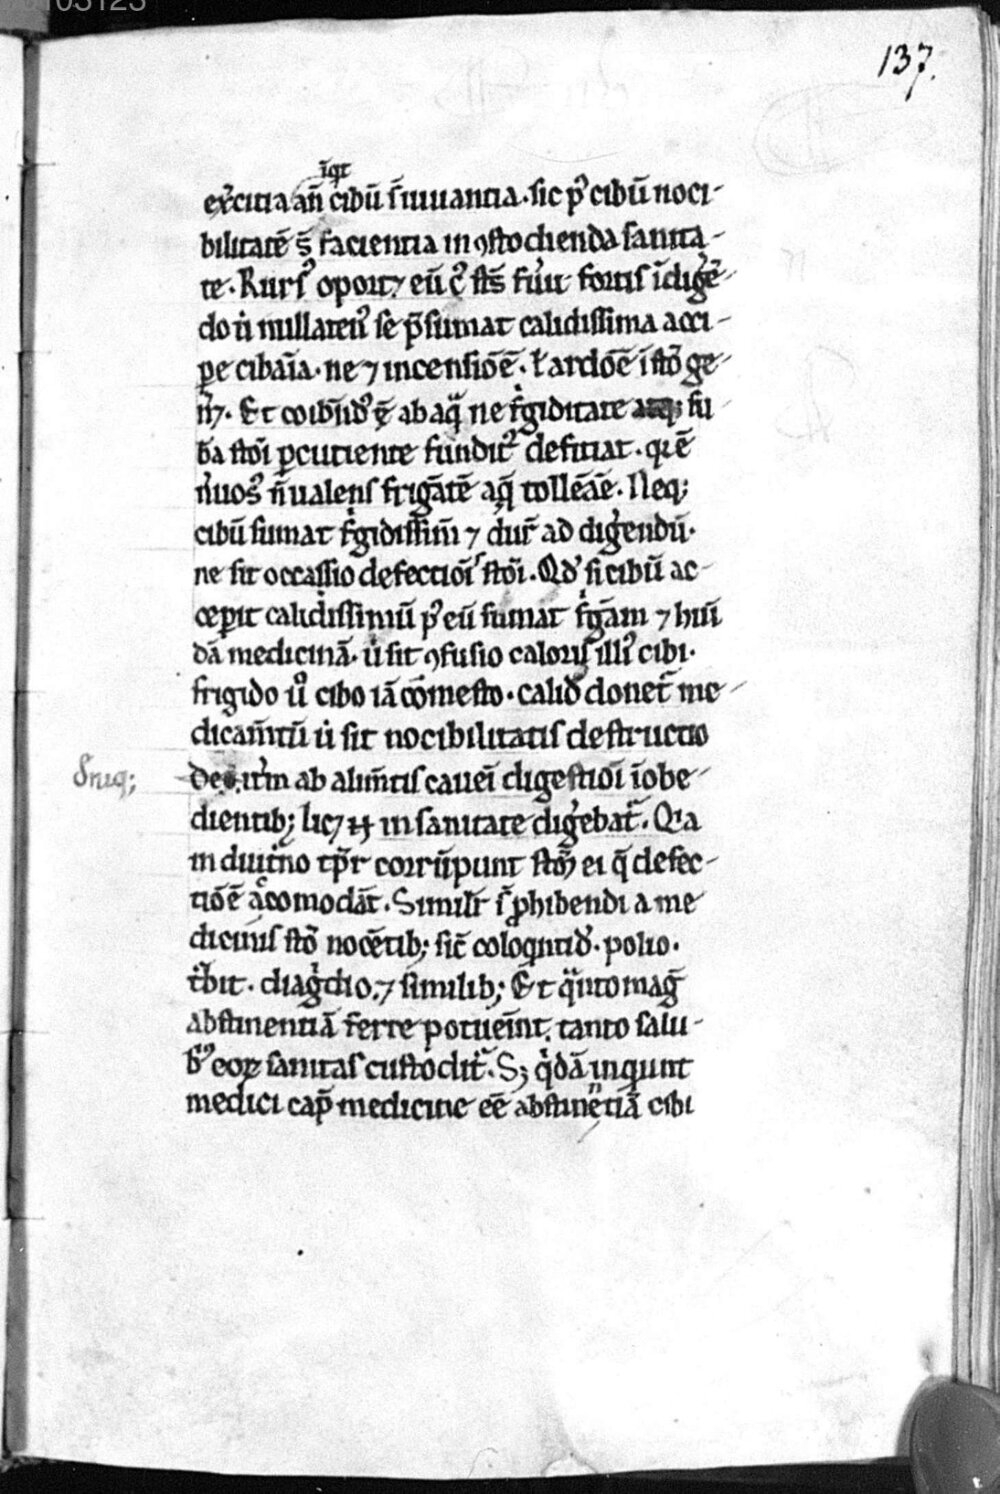 137.
iq̄t
ex̓citia an̄ cibū s̄ iuuantia. sic pꝰ cibū noci-
bilitatē s̄t facientia in ꝯstodienda sanita-
te. Rursꝰ oport⁊ eū cꝰ st̄s fu̓it fortis ī dig̓e-
do ut̓ nullaten̓ se p̄sumat calidissima acci-
ꝑe cibaīa. ne ⁊ incensiōē. ł ardōē ī stōͦ ge-
n̓⁊. Et coib̄ndꝰ ę̄ ab aq̄ ne fͥgiditate su
b̄a stōi ꝑcutiente fundit᷑ defitiat. qrē
n̓uosꝰ n̄ ualens friḡatē aq̄ tolleāē. Neq;
cibū sumat fͥgidissim̄ ⁊ dur̄ ad dig̓endū.
ne sit occassio defectiōis stōi. Qdꝰ si cibū ac-
ceꝑit calidissimū pꝰ eū sumat fͥgīam ⁊ huī
dā medicinā. ut̓ sit ꝯfusio caloris illiꝰ cibi.
frigido uͦ cibo iā cōmesto. calidꝰ donet᷑ me-
dicam̄tū ut̓ sit nocibilitatis destructio
Deniq;
de it̓m ab alim̄tis caueī digestiōi īobe-
dientib; lic⁊ in sanitate dig̓ebat᷑. Qͥa
in diuti̓no tp̄r corrūpunt stōm̄ ei q̄ defec-
tiōē acͨomodāt. Similr̄ s̄ ꝓhibendi a me
dicinis stōͦ nocētib; sic̄ coloqntidꝰ. polio.
t̓bit. diagͥdio. ⁊ similib; Et qͣnto maḡ
abstinentiā ferre potueīnt. tanto salu-
b̓ꝰ eoꝝ sanitas custodit᷑. Sꝫ qͥdā inqunt
medici cap̄ medicine eē abstinētiā cibi